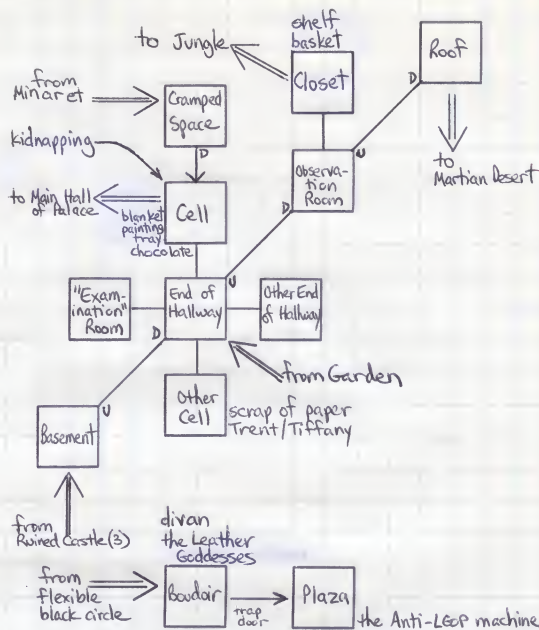 shelf
basket
to Jungle
Closet
Roof
D
to
Martian Desert
from
Minaret
Cramped
Space
D
kidnapping
U
Observa-
tion
Room
D
to Main Hall
of Palace
Cell
blanket
painting
tray
chocolate
U
"Exam-
ination"
Room
End of
Hallway
D
Other End
of Hallway
from Garden
Other
Cell
scrap of paper
Trent/Tiffany
U
Basement
from
Ruined Castle (3)
divan
the Leather
Goddesses
from
flexible
black circle
Boudoir
trap
door
Plaza
the Anti-LGOP machine